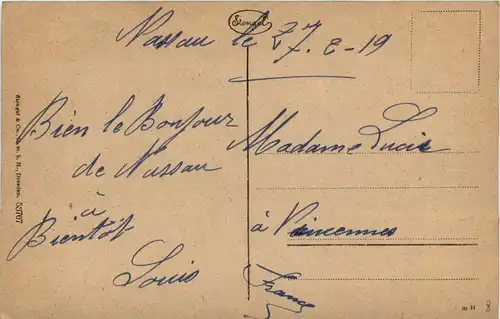 Stengel
Nassau le 27.2-19
Bien le Bonjour
de Nassau
à
Bientôt
Louis
Madame Lucie
à Vincennes
France
Stengel & Co., G. m. b. H., Dresden. 53767
m H 8